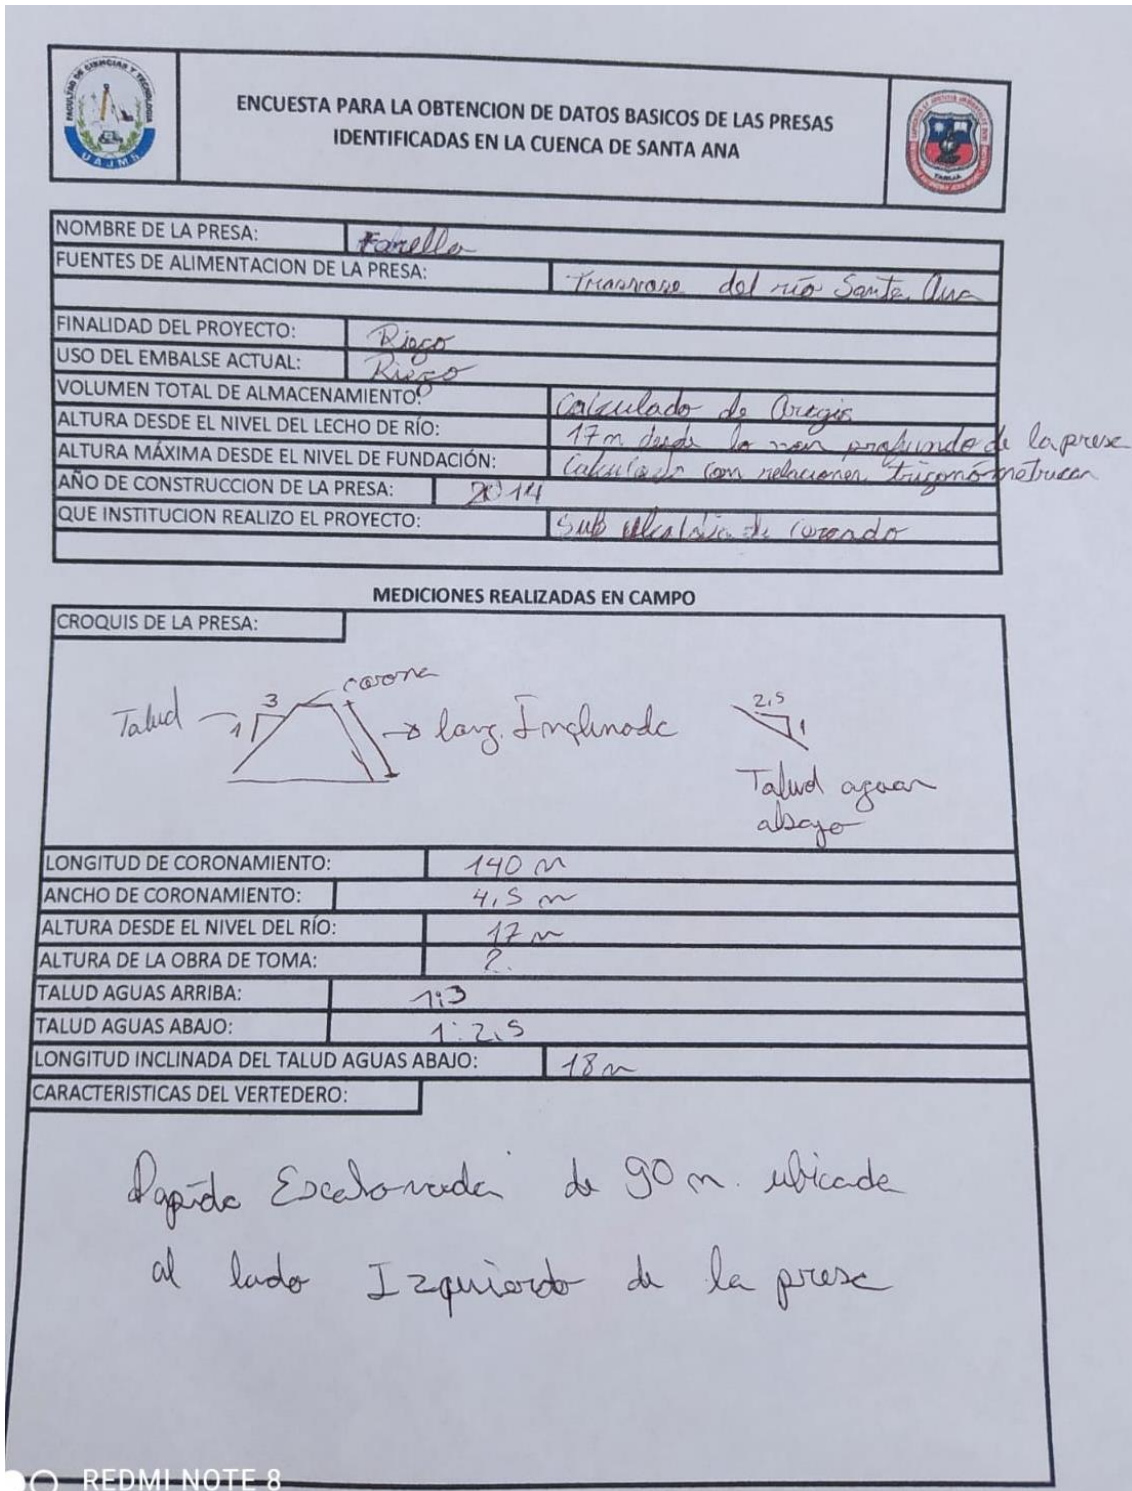 FACULTAD DE CIENCIAS Y TECNOLOGIA
U A J M S
ENCUESTA PARA LA OBTENCION DE DATOS BASICOS DE LAS PRESAS
IDENTIFICADAS EN LA CUENCA DE SANTA ANA
TARIJA
NOMBRE DE LA PRESA: Farella
FUENTES DE ALIMENTACION DE LA PRESA: Trasvase del río Santa Ana
FINALIDAD DEL PROYECTO: Riego
USO DEL EMBALSE ACTUAL: Riego
VOLUMEN TOTAL DE ALMACENAMIENTO: Calculado de Arcgis
ALTURA DESDE EL NIVEL DEL LECHO DE RÍO: 17 m desde lo mas profundo de la presa
ALTURA MÁXIMA DESDE EL NIVEL DE FUNDACIÓN: Calculado con relaciones trigonómetricas
AÑO DE CONSTRUCCION DE LA PRESA: 2014
QUE INSTITUCION REALIZO EL PROYECTO: Sub alcaldia de
MEDICIONES REALIZADAS EN CAMPO
CROQUIS DE LA PRESA:
corona
3
2,5
Talud
1
long. Inclinada
1
Talud aguas
abajo
LONGITUD DE CORONAMIENTO: 140 m
ANCHO DE CORONAMIENTO: 4,5 m
ALTURA DESDE EL NIVEL DEL RÍO: 17 m
ALTURA DE LA OBRA DE TOMA: ?
TALUD AGUAS ARRIBA: 1:3
TALUD AGUAS ABAJO: 1:2,5
LONGITUD INCLINADA DEL TALUD AGUAS ABAJO: 18 m
CARACTERISTICAS DEL VERTEDERO:
Rapida Escalonada de 90 m. ubicada
al lado Izquierdo de la presa
REDMI NOTE 8